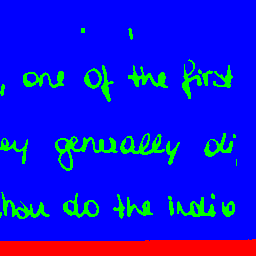 , one of the first
ey generally di
how do the indiv